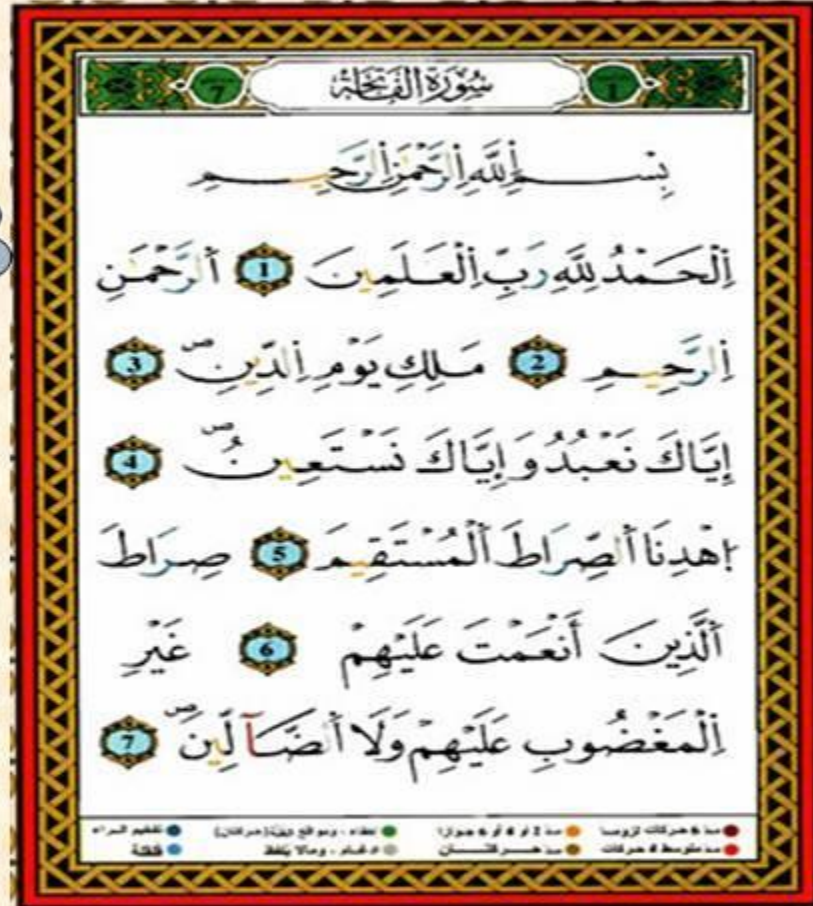 1 سُورَةُ الفَاتِحَةِ 7
بِسْمِ اِ۬للَّهِ اِ۬لرَّحْمَٰنِ اِ۬لرَّحِيمِ
اِ۬لْحَمْدُ لِلَّهِ رَبِّ اِ۬لْعَٰلَمِينَ 1 اَ۬لرَّحْمَٰنِ
اِ۬لرَّحِيمِ 2 مَلِكِ يَوْمِ اِ۬لدِّينِ ۖ 3
إِيَّاكَ نَعْبُدُ وَإِيَّاكَ نَسْتَعِينُ ۖ 4
اِ۪هْدِنَا اَ۬لصِّرَٰطَ اَ۬لْمُسْتَقِيمَ 5 صِرَٰطَ
اَ۬لَّذِينَ أَنْعَمْتَ عَلَيْهِمْ 6 غَيْرِ
اِ۬لْمَغْضُوبِ عَلَيْهِمْ وَلَا اَ۬لضَّآلِّينَ ۖ 7
مد 6 حركات لزوما مد 2 أو 4 أو 6 جوازا إخفاء، ومواقع الغنة (حركتان) تفخيم الراء
مد متوسط 4 حركات مد حركتان ادغام، ومالا يلفظ قلقلة